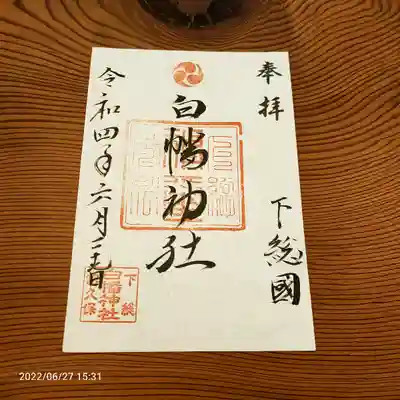 奉拝
下総國
白幡神社
令和四年六月二十七日
下総
白幡神社
大久保
2022/06/27 15:31